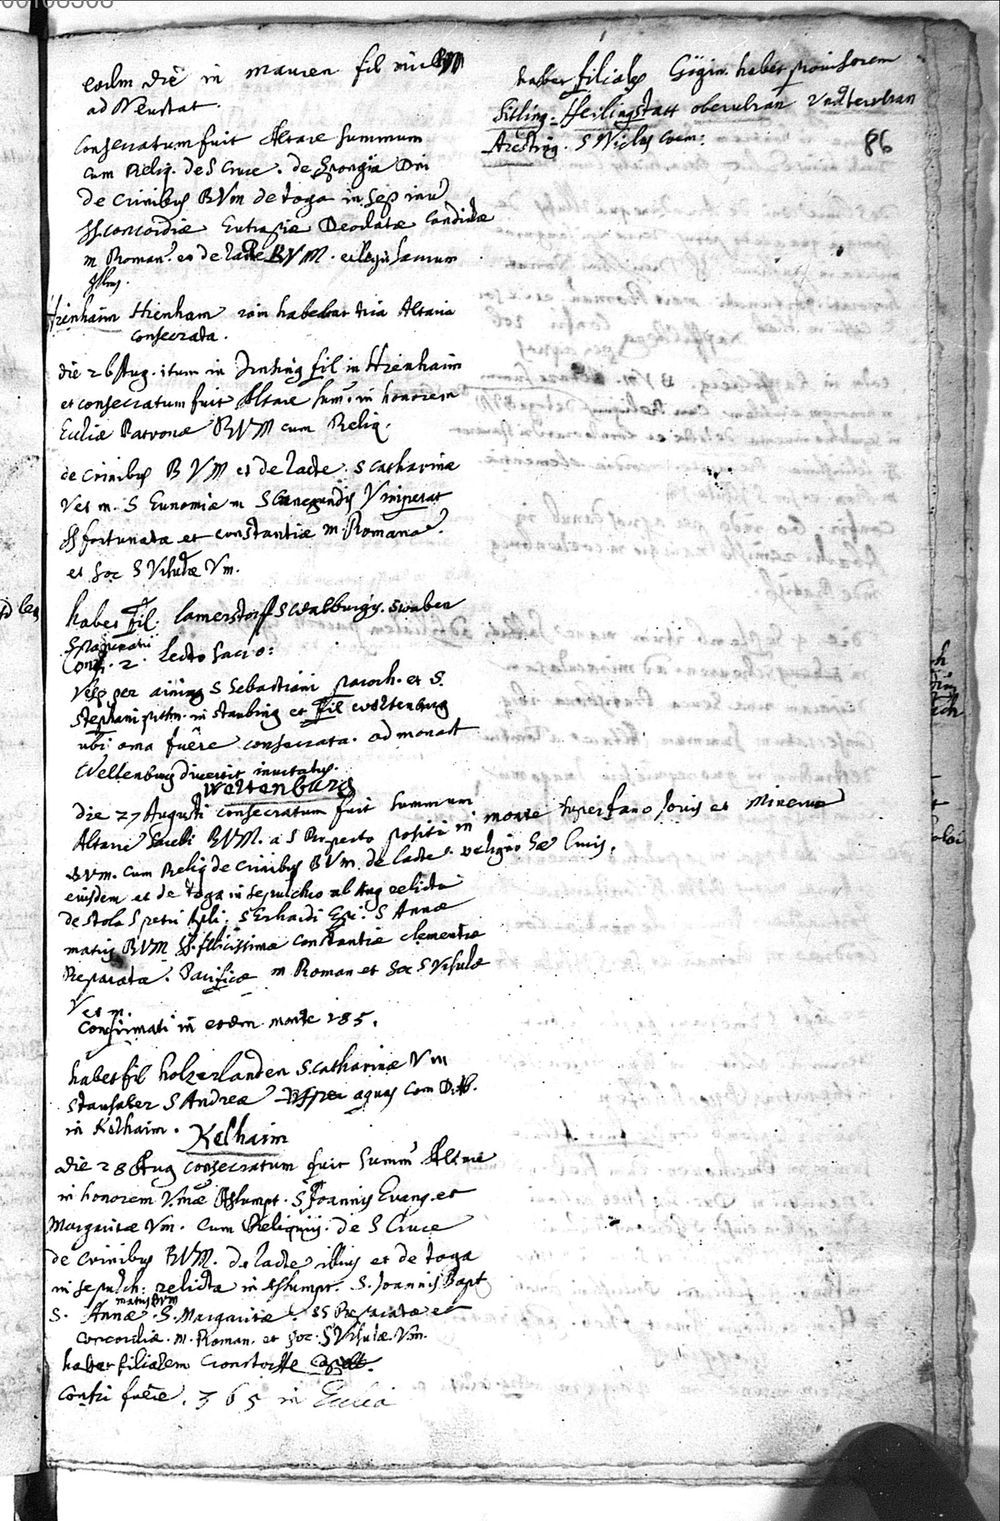 eodm die in Mauren fil
ad Neustat.
Consecratum fuit Altare summum
cum Reliq. de S Cruce. de Spongia Dni
de Crinibus BVM de toga in sep
SS Concordiæ Eutrasiæ Deodatæ Candidæ
m Roman. et de lacte BVM.
Hienhaim Hienham habebat tria Altaria
consecrata.
die 26 Aug. itum in Irnsing fil in Hienhaim
et consecratum fuit Altare sum. in honorem
Eccliæ Patronæ BVM cum Reliq.
de Crinibus BVM et de lacte. S Catharinæ
V et m. S Eunomiæ m S Cunegundis V imperat
SS fortunatæ et constantiæ m. Romanæ.
et soc S Ursulæ Vm.
habet Fil. lamerstorf S Walburgis.
Conf. 2. lecto sacro:
Vesp per aining S Sebastiani paroch. et S.
Stephani in Staubing et Fil Weltenburg
ubi oma fuere consecrata. ad monast
Weltenburg divertit invitatus.
Weltenburg
die 27 Augusti consecratum fuit summum
Altare Sacelli BVM. a S Ruperto positi in monte super fano Jovis et Minervæ
BVM. cum Reliq de Crinibus BVM. de lacte.
eiusdem et de toga in sepulchro relicta
de stola S petri Apli. S Erhardi Epi. S Annæ
matris BVM SS. felicissimæ constantiæ clementiæ
Reparatæ. Pacificæ m Roman et soc S Ursulæ
V et m.
Confirmati in eodm monte 285.
habet fil holzerlanden S. Catharinæ V m
Stausaker S Andreæ per aquas
in Kelhaim.
Kelhaim
die 28 Aug consecratum fuit summ Altare
in honorem V.mæ Assumpt. S Joannis Evang. et
Margaritæ Vm. cum Reliquiis. de S Cruce
de Crinibus BVM. de lacte illius et de toga
in sepulch: relicta in Assumpt. S. Joannis Bapt
matris BVM
S. Annæ. S. Margaritæ. SS Reparatæ et
Concordiæ. m. Roman. et soc. S Ursulæ Vm.
habet filialem Cronstorff
Confir fuere. 365 in Ecclia
habet filiales Gögin. habet provisorem
Sitling. Heilingstatt oberulran Vndterulran
Aresting. S Niclas
86